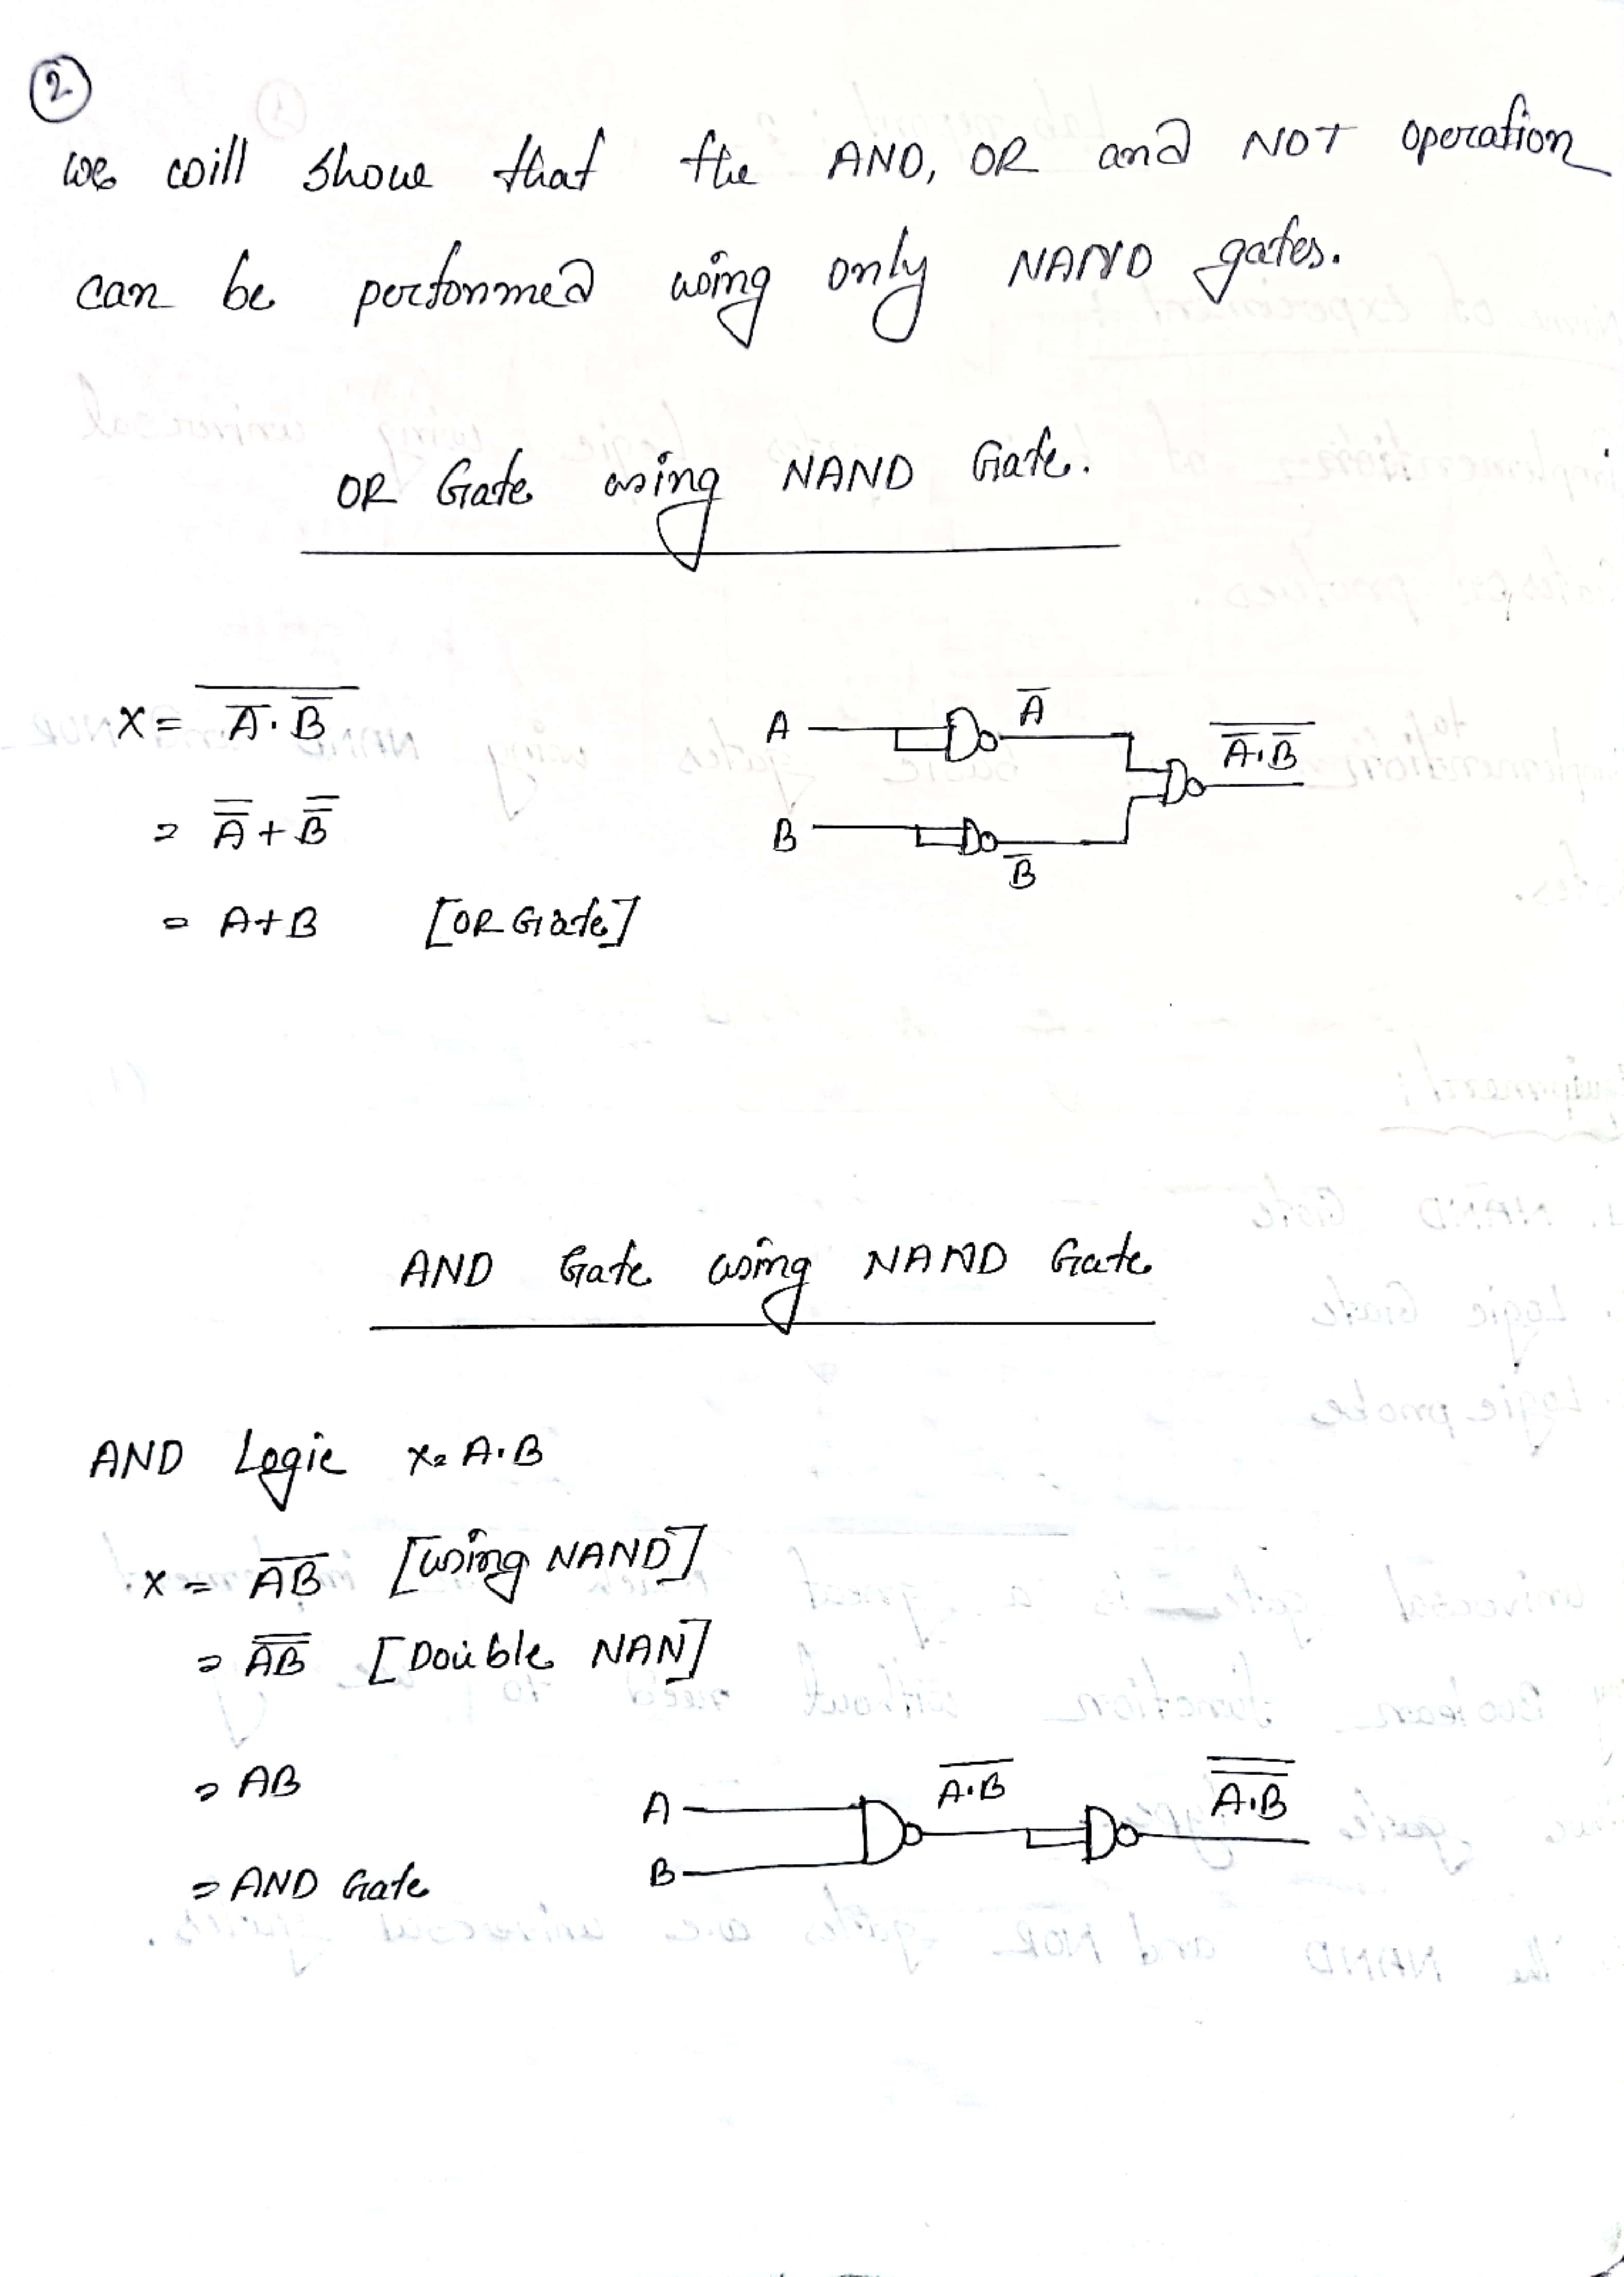 2
we will show that the AND, OR and NOT operation
can be performed using only NAND gates.
OR Gate using NAND Gate.
X = \overline{\overline{A}.\overline{B}}
= \overline{\overline{A}} + \overline{\overline{B}}
= A+B [OR Gate]
A \overline{A} \overline{\overline{A}.\overline{B}}
B \overline{B}
AND Gate using NAND Gate
AND Logic X= A.B
X = \overline{AB} [using NAND]
= \overline{\overline{AB}} [Double NAN]
= AB
= AND Gate
A \overline{A.B} \overline{\overline{A.B}}
B